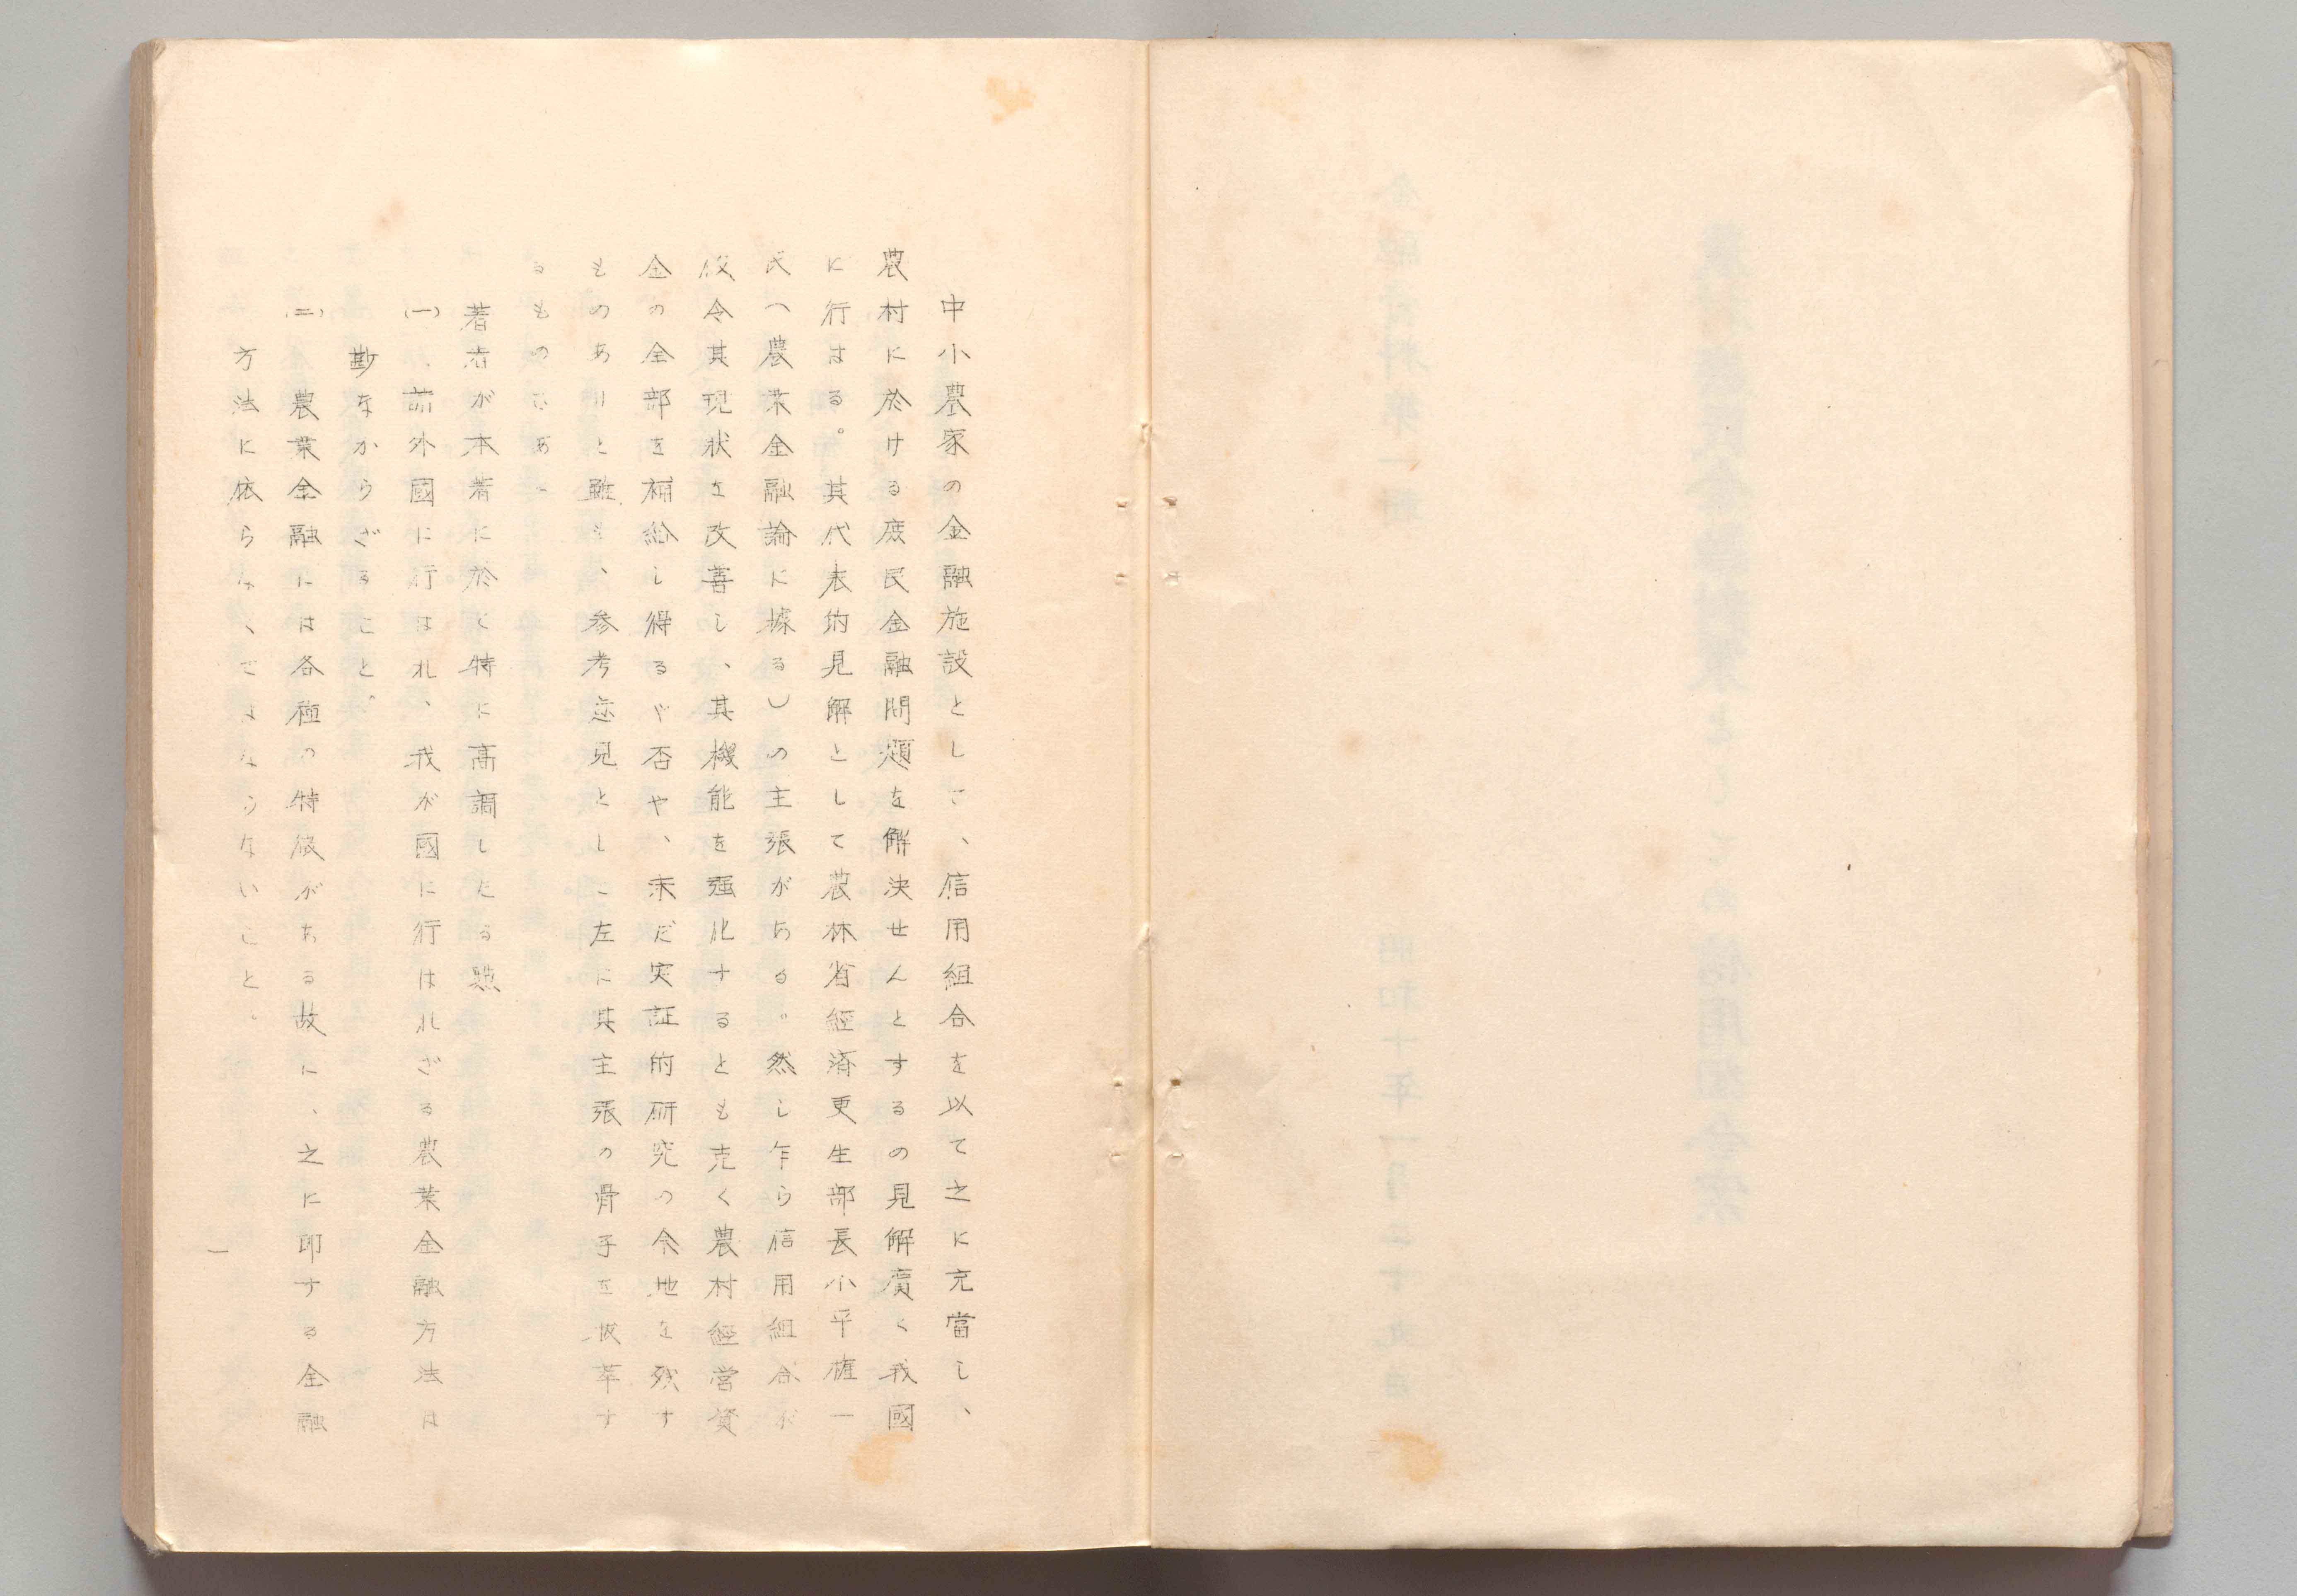 中小農家の金融施設として、信用組合を以て之に充當し、
農村に於ける庶民金融問題を解決せんとするの見解廣く我國
に行はる。其代表的見解として農林省經済更生部長小平権一
氏(農業金融論に據る)の主張がある。然し乍ら信用組合が
仮令其現状を改善し、其機能を强化するとも克く農村經営資
金の全部を補給し得るや否や、未だ実証的研究の余地を残す
ものありと雖も、参考意見として左に其主張の骨子を抜萃す
るものである
著者が本著に於て特に高調したる點
(一)、諸外國に行はれ、我が國に行はれざる農業金融方法は
尠なからざること。
(二) 農業金融には各種の特徴がある故に、之に即する金融
方法に依らなくてはならないこと。
一